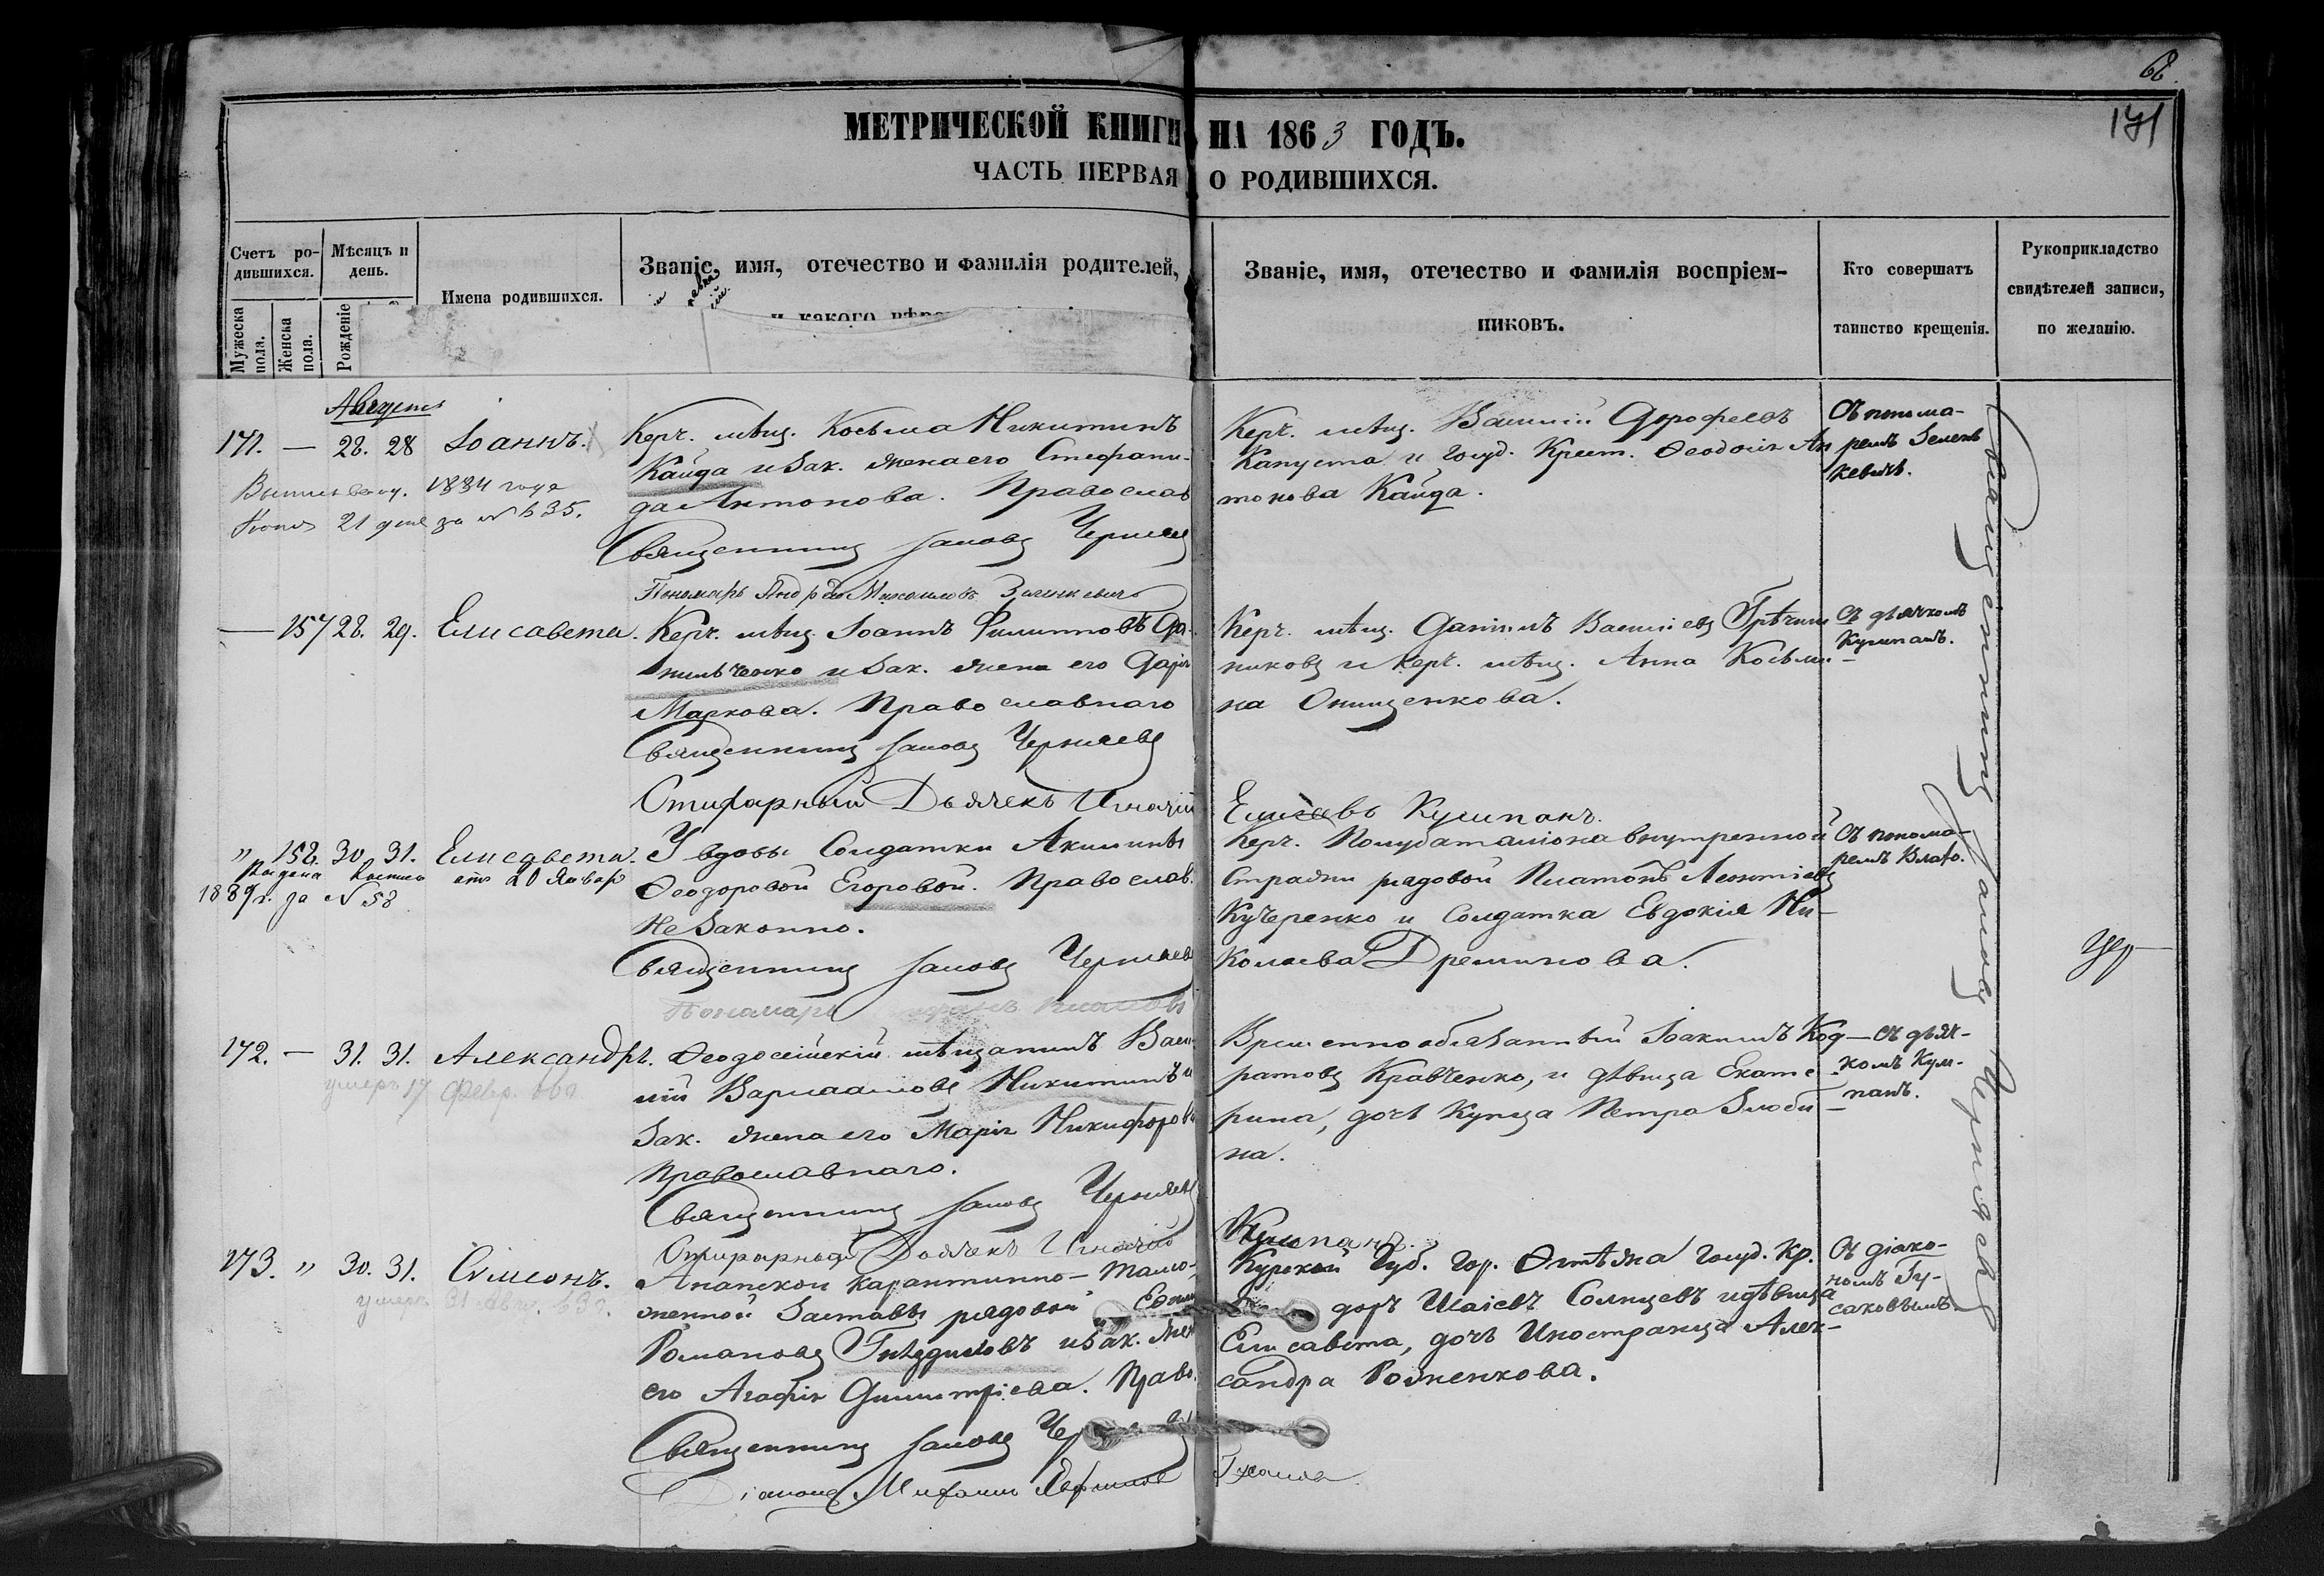 68.
171
МЕТРИЧЕСКОЙ КНИГИ НА 1863 ГОДЪ.
ЧАСТЬ ПЕРВАЯ О РОДИВШИХСЯ.
Счетъ ро-
дившихся.
Мужеска пола.
Женска пола.
Мѣсяцъ и
день.
Рожденіе
Имена родившихся.
Званіе, имя, отечество и фамилія родителей,
и какого вѣро
Званіе, имя, отечество и фамилія воспріем-
никовъ.
Кто совершатъ
таинство крещенія.
Рукоприкладство
свидѣтелей записи,
по желанію.
Августъ
171. — 28. 28 Іоаннъ.
1884 года
21 дня за № 635.
Керч. мѣщ. Косьма Никитинъ
Кайда и Зак. жена его Стефани-
да Антонова. Православ
Священникъ Іаковъ Черняев
Пономарь Михаиловъ
Керч. мѣщ. Василій Дорофеевъ
Капуста и госуд. Крест. Ѳеодосія Ан
тонова Кайда.
Съ понома-
ремъ Зелен
кевичъ.
— 157 28. 29. Елисавета.
Керч. мѣщ. Іоаннъ Филипповъ Да-
нильченко и Зак. жена его Дарія
Маркова. Православнаго
Священникъ Іаковъ Черняевъ
Стихарный Дьячекъ Игнатій Елисеевъ Кумпанъ.
Керч. мѣщ. Даніилъ Василіевъ Грѣчин
никовъ и Керч. мѣщ. Анна Косьми-
на Онищенкова.
Съ дьячкомъ
Кумпанъ.
" 158. 30. 31. Елисавета.
отъ 20 Января
1889 г. за № 58
У вдовы Солдатки Акилины
Ѳеодоровой Егоровой. Православ.
Незаконно.
Священникъ Іаковъ Черняевъ
Пономарь
Керч. Полубаталіона внутренной
Стражи рядовой Платонъ Леонтіевъ
Кучеренко и Солдатка Евдокія Ни-
колаева Дреминова.
Съ понома-
ремъ
172. — 31. 31. Александръ.
умеръ 17 Февр.
Ѳеодосійскій мѣщанинъ Васи-
лій Варлаамовъ Никитинъ и
Зак. жена его Марія Никифорова
Православнаго.
Священникъ Іаковъ Черняевъ
Стихарный Дьячекъ Игнатій Кумпанъ.
Временнообязанный Іоакимъ Код-
ратовъ Кравченко, и дѣвица Екате
рина, дочь Купца Петра Злоби-
на.
Съ дьяч-
комъ Кум-
панъ.
173. " 30. 31. Симеонъ.
умеръ 31 Авг. 63 г.
Анапской карантинно-тамо-
женной Заставы рядовой
Романовъ Гнѣздиловъ и Зак. жен
его Агафія Димитріева. Право.
Священникъ Іаковъ
Діаконъ Михаилъ
Курской Губ. Гор. госуд. Кр.
доръ Исаіевъ Солнцевъ и дѣвица
Елисавета, дочь Иностранца Алек-
сандра Роженкова.
Съ діако-
номъ Гу-
саковымъ.
Священникъ Іаковъ Черняевъ